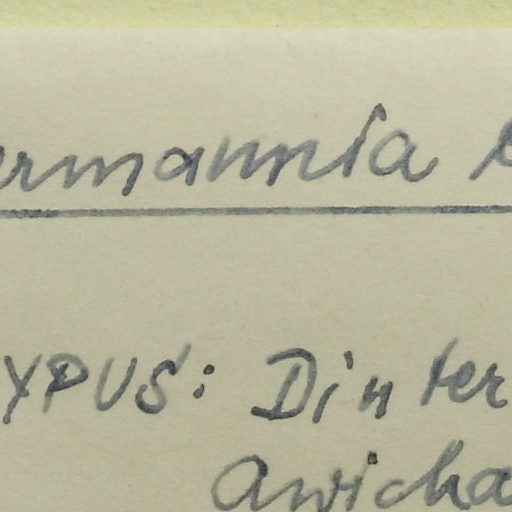 ermannia
YPUS: Dinter
Awicha